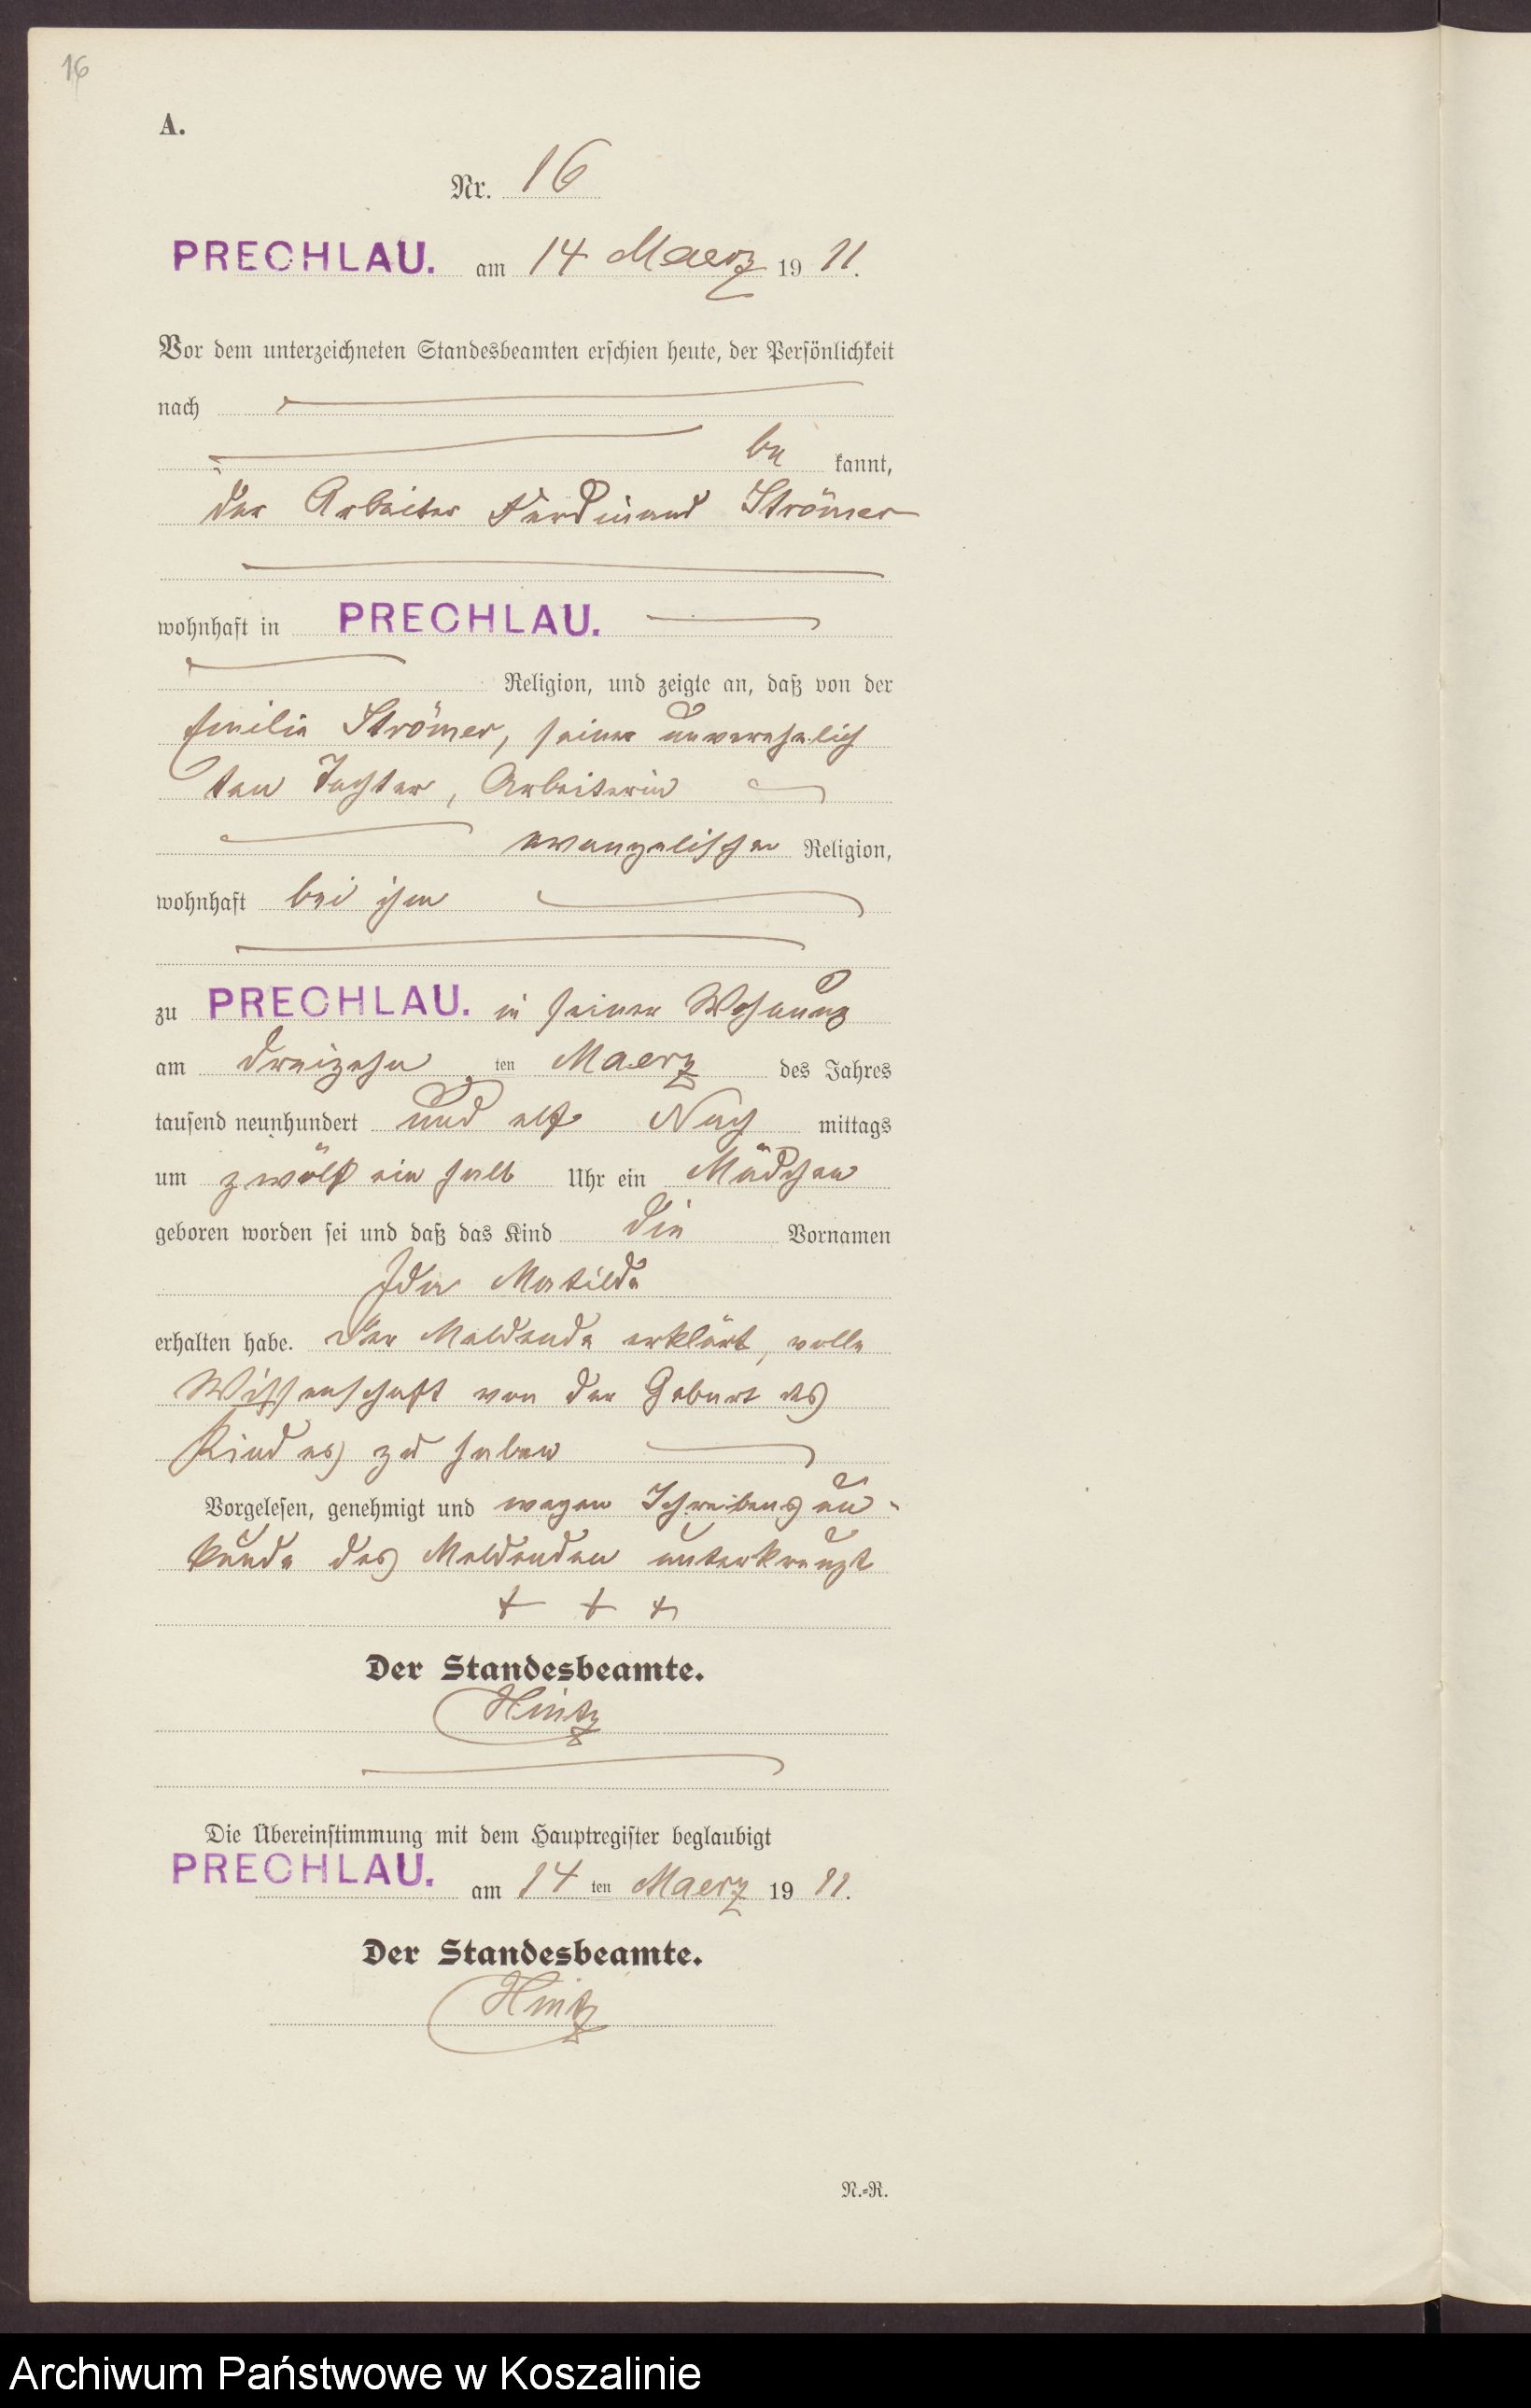 16
A.
Nr. 16
PRECHLAU. am 14 Maerz 19 11.
Vor dem unterzeichneten Standesbeamten erschien heute, der Persönlichkeit
nach
be kannt,
der Arbeiter Ferdinand Strömer
wohnhaft in PRECHLAU.
Religion, und zeigte an, daß von der
Emilie Strömer, seiner unverehelich
ten Tochter, Arbeiterin
evangelischer Religion,
wohnhaft bei ihm
zu PRECHLAU. in seiner Wohnung
am dreizehn ten Maerz des Jahres
tausend neunhundert und elf Nach mittags
um zwölf ein halb Uhr ein Mädchen
geboren worden sei und daß das Kind die Vornamen
Ida Matilde
erhalten habe. Der Meldende erklärt, volle
Wissenschaft von der Geburt des
Kindes zu haben
Vorgelesen, genehmigt und wegen Schreibens un-
kunde des Meldenden unterkreuzt
+ + +
Der Standesbeamte.
Hintz
Die Übereinstimmung mit dem Hauptregister beglaubigt
PRECHLAU. am 14 ten Maerz 19 11.
Der Standesbeamte.
Hintz
N.=R.
Archiwum Państwowe w Koszalinie